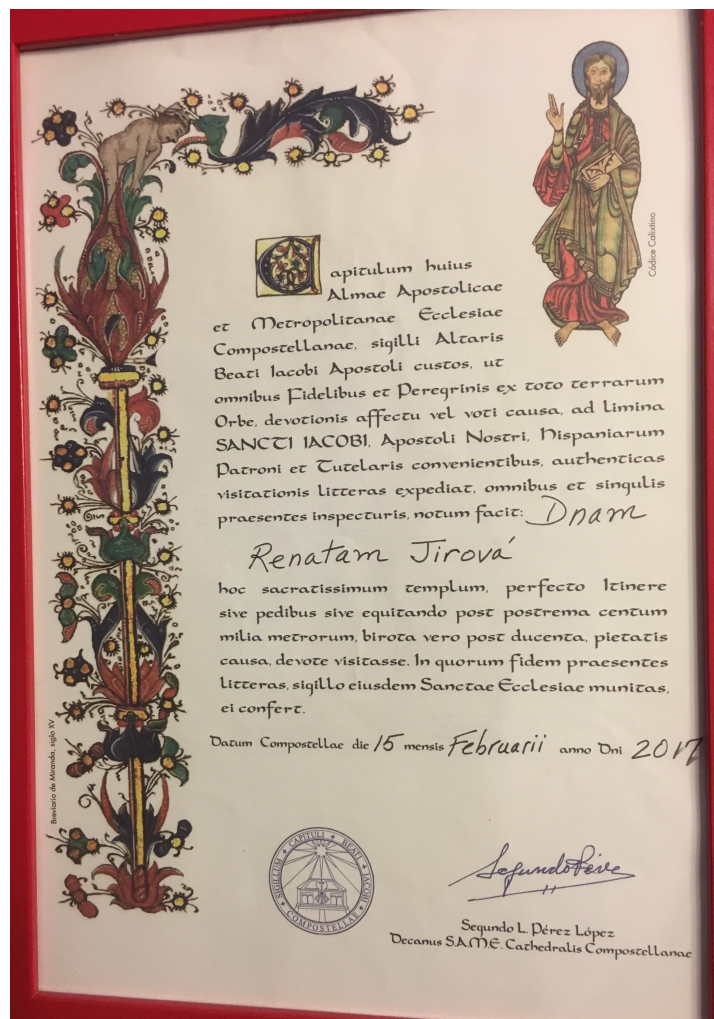 Códice Calixtino
Capitulum huius
Almae Apostolicae
et Metropolitanae Ecclesiae
Compostellanae, sigilli Altaris
Beati Iacobi Apostoli custos, ut
omnibus Fidelibus et Peregrinis ex toto terrarum
Orbe, devotionis affectu vel voti causa, ad limina
SANCTI IACOBI, Apostoli Nostri, Hispaniarum
Patroni et Tutelaris convenientibus, authenticas
visitationis litteras expediat, omnibus et singulis
praesentes inspecturis, notum facit: Dnam
Renatam Jirová
hoc sacratissimum templum, perfecto Itinere
sive pedibus sive equitando post postrema centum
milia metrorum, birota vero post ducenta, pietatis
causa, devote visitasse. In quorum fidem praesentes
litteras, sigillo eiusdem Sanctae Ecclesiae munitas,
ei confert.
Datum Compostellae die 15 mensis Februarii anno Dni 2017
Breviario de Miranda, siglo XV
SIGILLUM + CAPITULI + BEATI + IACOBI + COMPOSTELLAE +
Segundo Pérez
Segundo L. Pérez López
Decanus S.A.M.E. Cathedralis Compostellanae